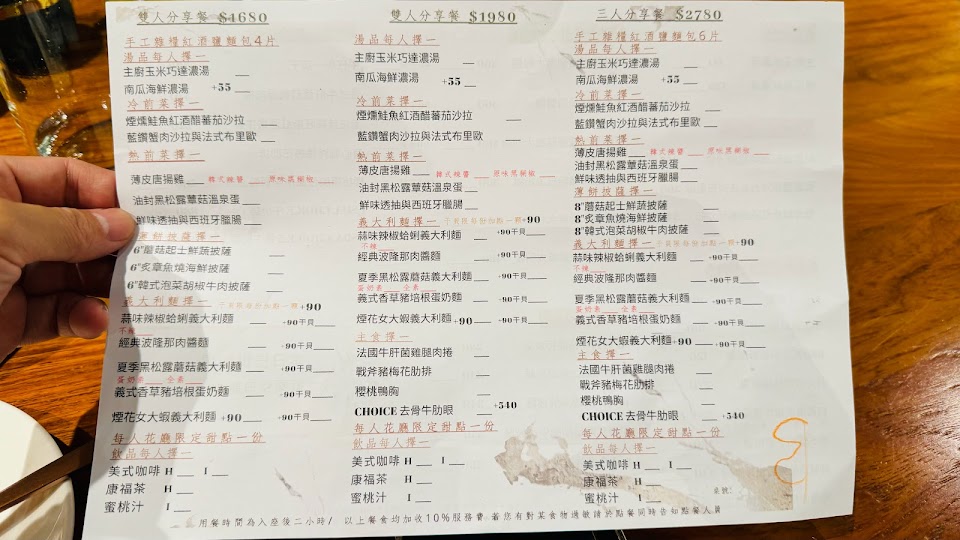 雙人分享餐 $4680
手工雜糧紅酒鹽麵包4片
湯品每人擇一
主廚玉米巧達濃湯
南瓜海鮮濃湯 +55
冷前菜擇一
煙燻鮭魚紅酒醋蕃茄沙拉
藍鑽蟹肉沙拉與法式布里歐
熱前菜擇一
薄皮唐揚雞 韓式辣醬 原味黑椒椒
油封黑松露蕈菇溫泉蛋
鮮味透抽與西班牙臘腸
薄餅披薩擇一
6"蘑菇起士鮮蔬披薩
6"炙章魚燒海鮮披薩
6"韓式泡菜胡椒牛肉披薩
義大利麵擇一 干貝限每份加點一顆+90
蒜味辣椒蛤蜊義大利麵 +90干貝
不辣
經典波隆那肉醬麵 +90干貝
夏季黑松露蘑菇義大利麵 +90干貝
蛋奶素 全素
義式香草豬培根蛋奶麵 +90干貝
煙花女大蝦義大利麵 +90 +90干貝
每人花廳限定甜點一份
飲品每人擇一
美式咖啡 H I
康福茶 H
蜜桃汁 I
雙人分享餐 $1980
湯品每人擇一
主廚玉米巧達濃湯
南瓜海鮮濃湯 +55
冷前菜擇一
煙燻鮭魚紅酒醋蕃茄沙拉
藍鑽蟹肉沙拉與法式布里歐
熱前菜擇一
薄皮唐揚雞 韓式辣醬 原味黑椒椒
油封黑松露蕈菇溫泉蛋
鮮味透抽與西班牙臘腸
義大利麵擇一 干貝限每份加點一顆+90
蒜味辣椒蛤蜊義大利麵 +90干貝
不辣
經典波隆那肉醬麵 +90干貝
夏季黑松露蘑菇義大利麵 +90干貝
蛋奶素 全素
義式香草豬培根蛋奶麵 +90干貝
煙花女大蝦義大利麵 +90 +90干貝
主食擇一
法國牛肝菌雞腿肉捲
戰斧豬梅花肋排
櫻桃鴨胸
CHOICE 去骨牛肋眼 +540
每人花廳限定甜點一份
飲品每人擇一
美式咖啡 H I
康福茶 H
蜜桃汁 I
三人分享餐 $2780
手工雜糧紅酒鹽麵包6片
湯品每人擇一
主廚玉米巧達濃湯
南瓜海鮮濃湯 +55
冷前菜擇一
煙燻鮭魚紅酒醋蕃茄沙拉
藍鑽蟹肉沙拉與法式布里歐
熱前菜擇一
薄皮唐揚雞 韓式辣醬 原味黑椒椒
油封黑松露蕈菇溫泉蛋
鮮味透抽與西班牙臘腸
薄餅披薩擇一
8"蘑菇起士鮮蔬披薩
8"炙章魚燒海鮮披薩
8"韓式泡菜胡椒牛肉披薩
義大利麵擇一 干貝限每份加點一顆+90
蒜味辣椒蛤蜊義大利麵 +90干貝
不辣
經典波隆那肉醬麵 +90干貝
夏季黑松露蘑菇義大利麵 +90干貝
蛋奶素 全素
義式香草豬培根蛋奶麵 +90干貝
煙花女大蝦義大利麵 +90 +90干貝
主食擇一
法國牛肝菌雞腿肉捲
戰斧豬梅花肋排
櫻桃鴨胸
CHOICE 去骨牛肋眼 +540
每人花廳限定甜點一份
飲品每人擇一
美式咖啡 H I
康福茶 H
蜜桃汁 I
桌號:
用餐時間為入座後二小時/ 以上餐食均加收10%服務費 若您有對某食物過敏請於點餐同時告知點餐人員